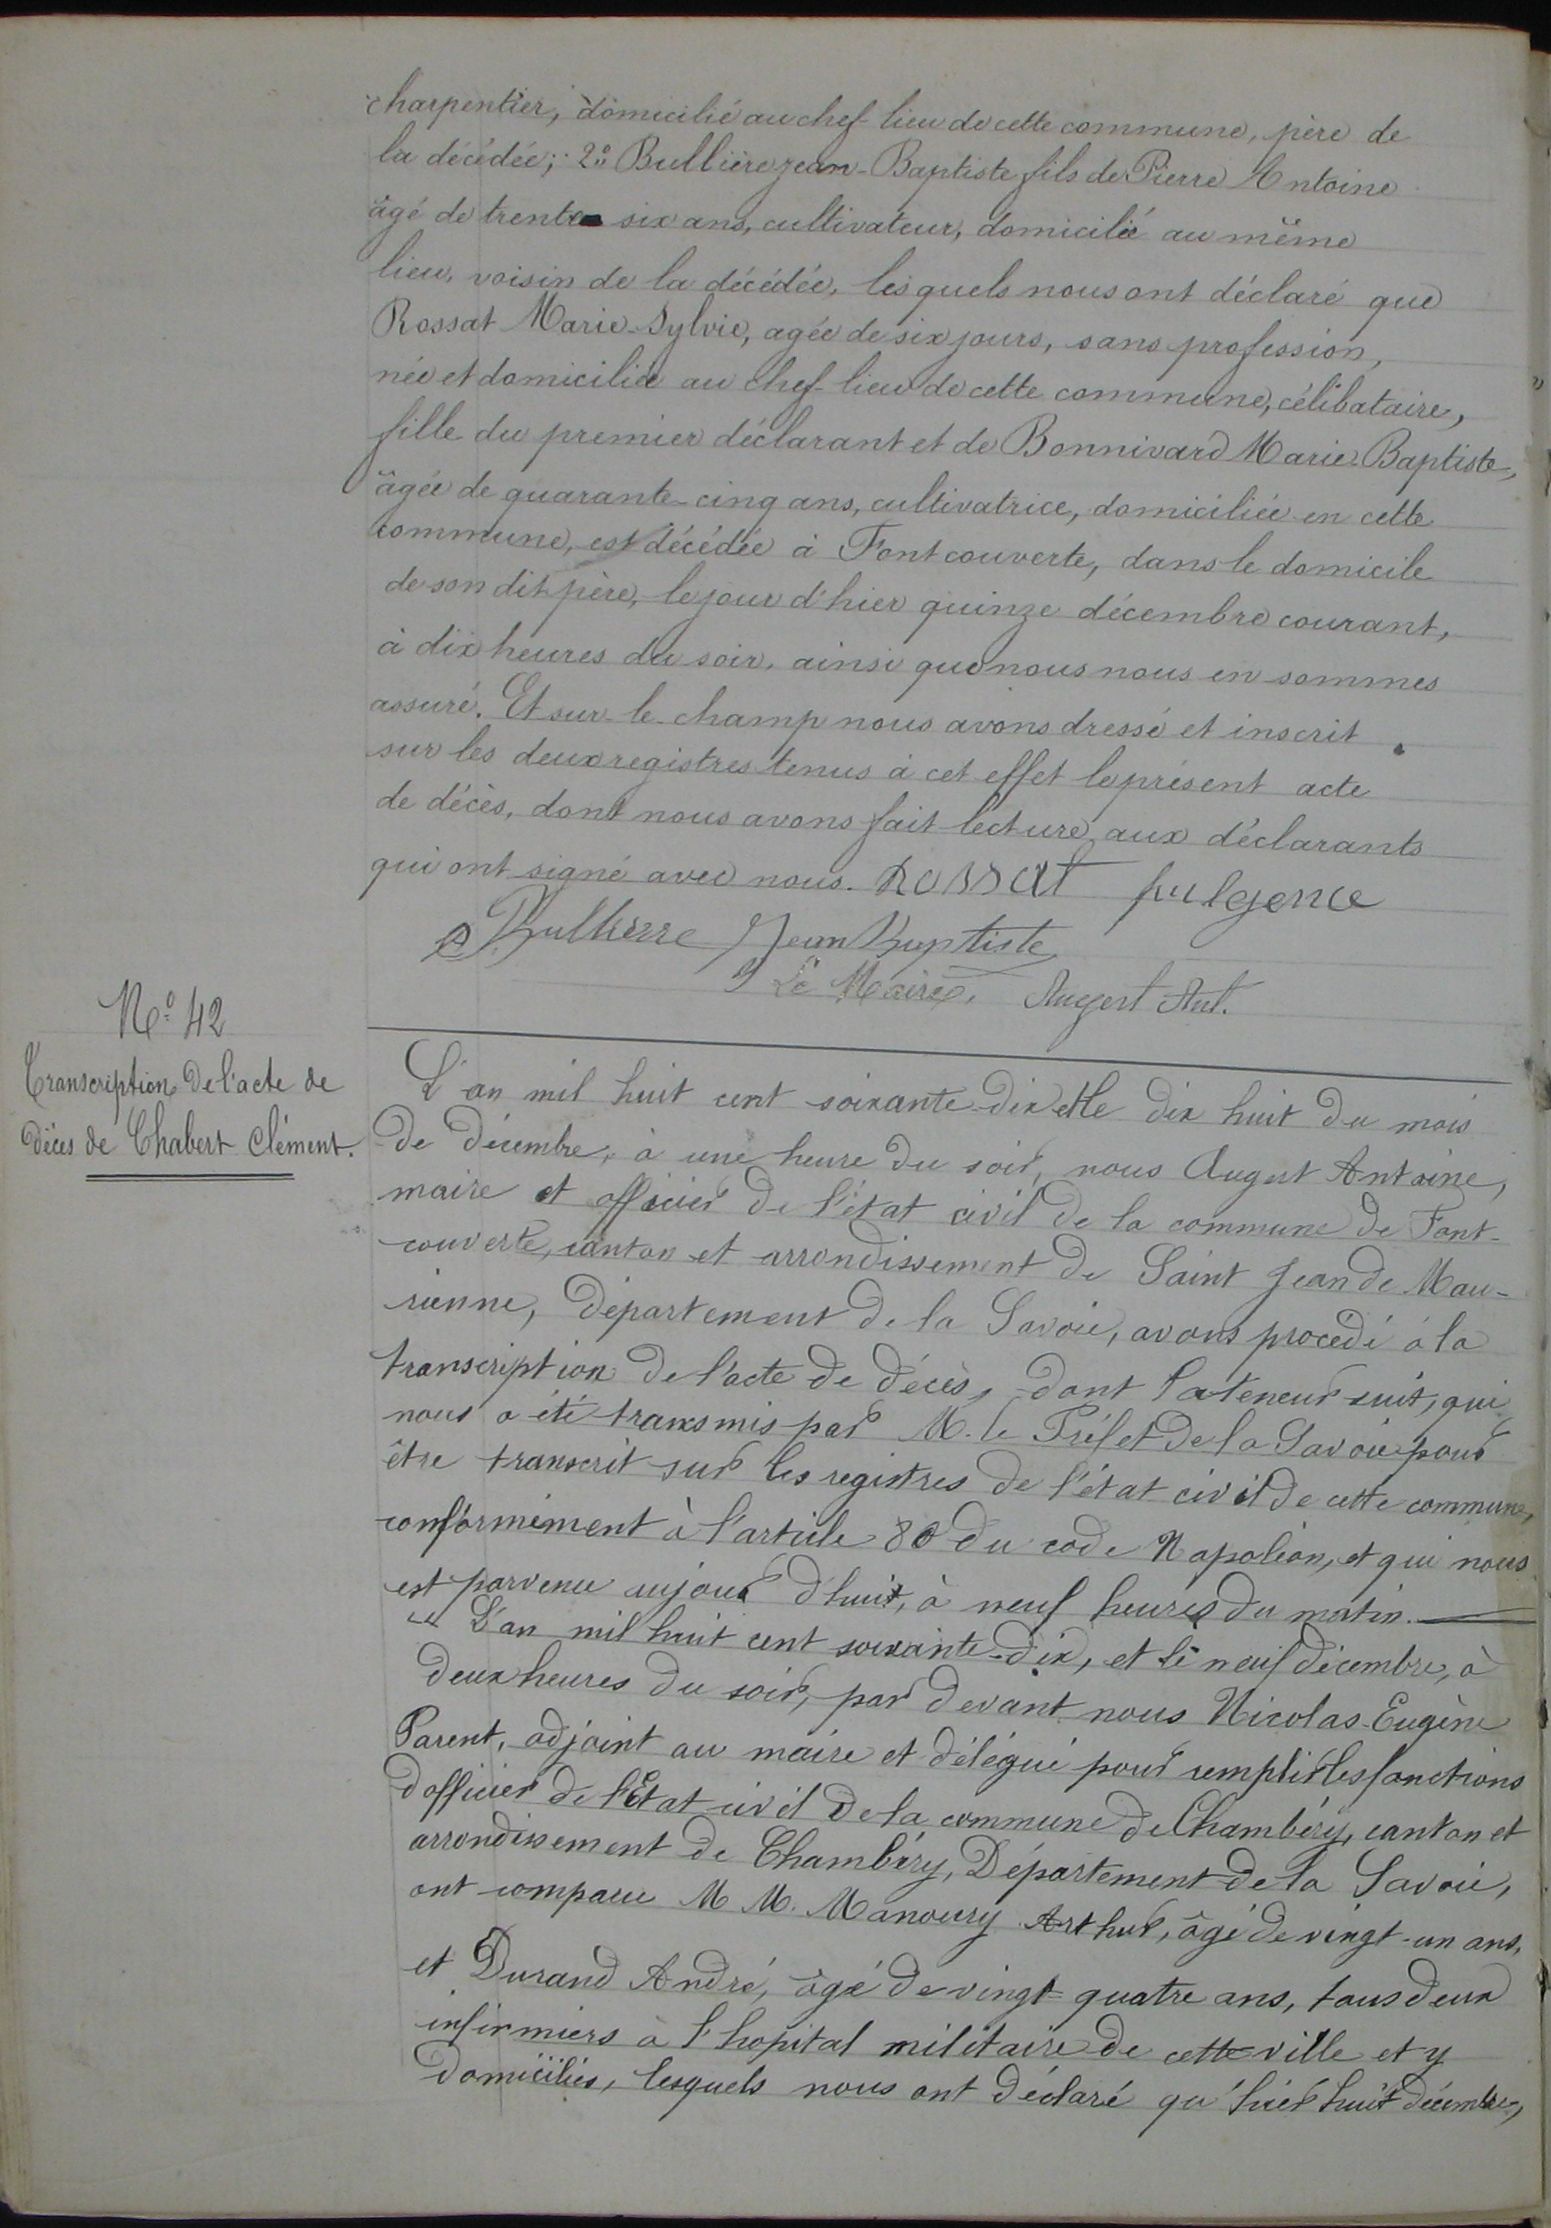 charpentier, domicilié au chef-lieu de cette commune, père de
la décédée; 2° Bullière jean-Baptiste fils de Pierre Antoine
âgé de trente six ans, cultivateur, domicilié au même
lieu, voisin de la décédée, lesquels nous ont déclaré que
Rossat Marie-Sylvie, agée de six jours, sans profession,
née et domiciliée au chef-lieu de cette commune, célibataire,
fille du premier déclarant et de Bonnivard Marie Baptiste,
âgée de quarante-cinq ans, cultivatrice, domiciliée en cette
commune, est décédée à Fontcouverte, dans le domicile
de son dit père, le jour d'hier quinze décembre courant,
à dix heures du soir, ainsi que nous nous en sommes
assuré. Et sur-le-champ nous avons dressé et inscrit
sur les deux registres tenus à cet effet le présent acte
de décès, dont nous avons fait lecture aux déclarants
qui ont signé avec nous. Rossat fulgence
Bullierre Jean Baptiste
Le Maire, Augert Ant.
N° 42
Transcription de l'acte de
décès de Chabert Clément.
L'an mil huit cent soixante-dix et le dix huit du mois
de décembre, à une heure du soir, nous Augert Antoine,
maire et officier de l'état civil de la commune de Font-
couverte, canton et arrondissement de Saint Jean de Mau-
rienne, département de la Savoie, avons procédé à la
transcription de l'acte de décès, dont la teneur suit, qui
nous a été transmis par M. le Préfet de la Savoie pour
être transcrit sur les registres de l'état civil de cette commune,
conformément à l'article 80 du code Napoléon, et qui nous
est parvenu aujourd'huit, à neuf heures du matin.
" L'an mil huit cent soixante-dix, et le neuf décembre, à
deux heures du soir, par devant nous Nicolas-Eugène
Parent, adjoint au maire et délégué pour remplir les fonctions
d'officier de l'Etat civil de la commune de Chambéry, canton et
arrondissement de Chambéry, Département de la Savoie,
ont comparu M M. Manoury Arthur, âgé de vingt-un ans,
et Durand André, âgé de vingt-quatre ans, tous deux
infirmiers à l'hopital militaire de cette ville et y
domiciliés, lesquels nous ont déclaré qu'hier huit décembre,